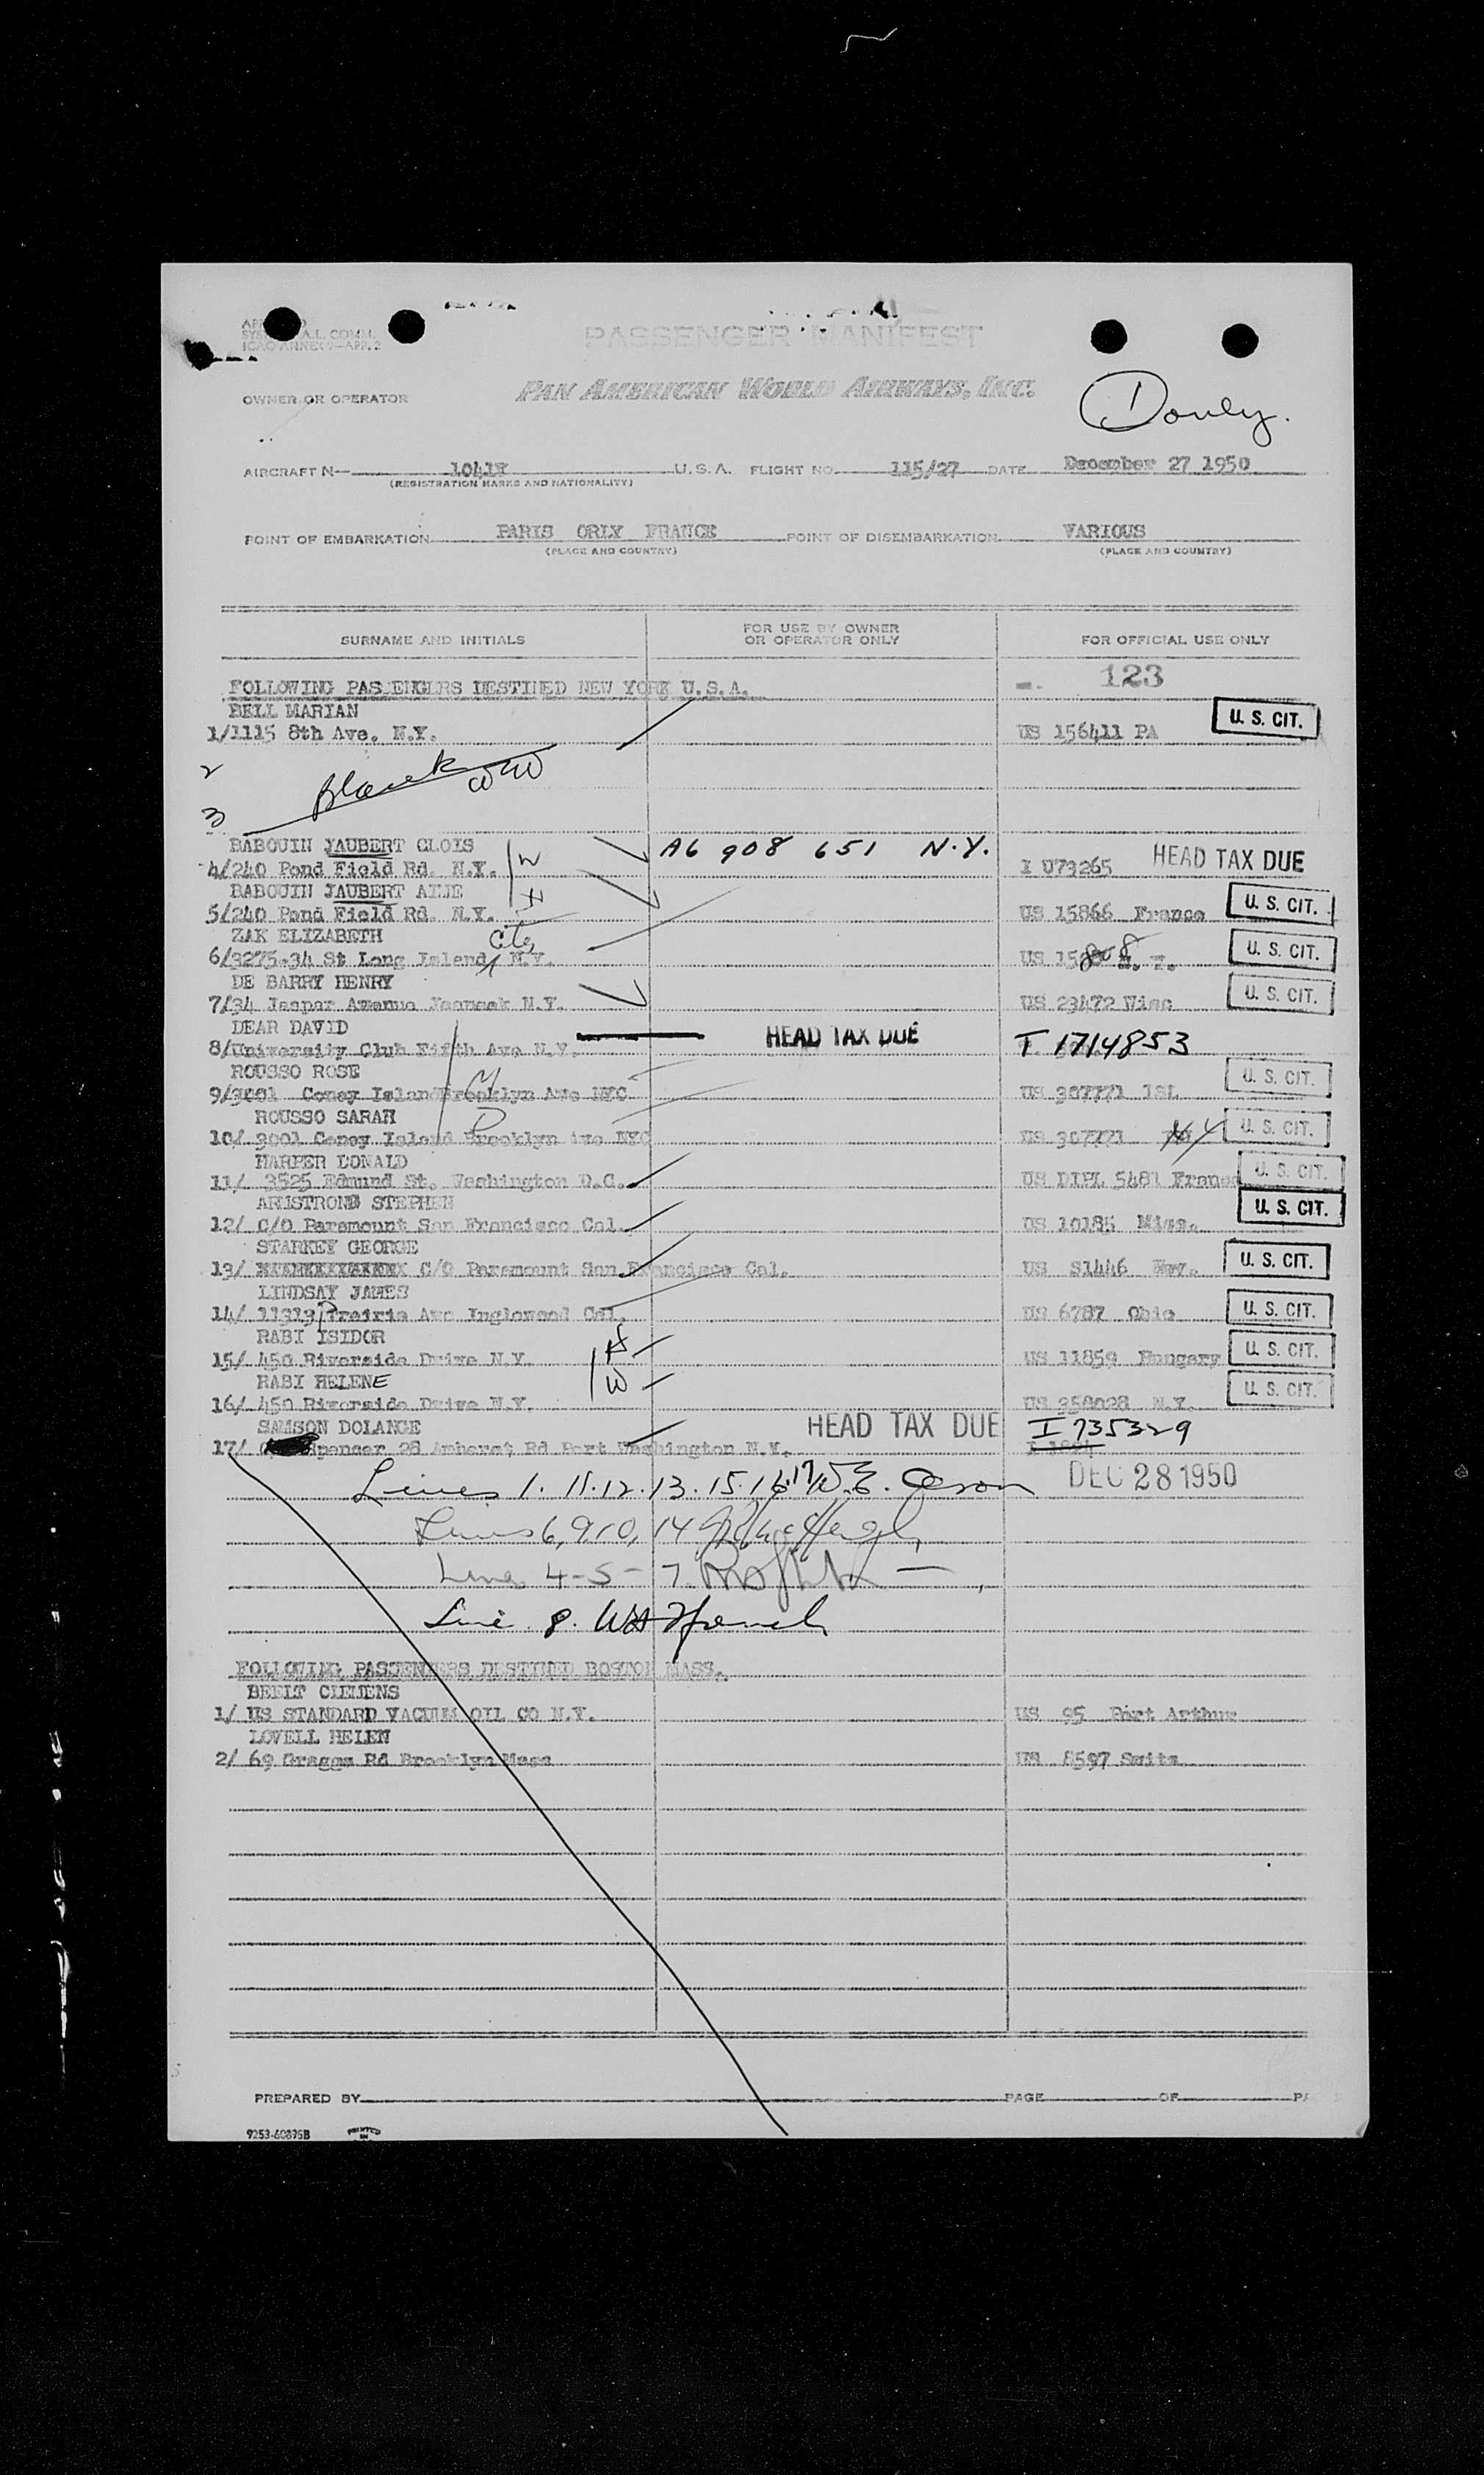 PASSENGER MANIFEST
A.L. COMM.
ICAO ANNEX 9—APP. 2
OWNER OR OPERATOR PAN AMERICAN WORLD AIRWAYS, INC.
AIRCRAFT N— U.S.A. FLIGHT NO. 115/27 DATE December 27 1950
(REGISTRATION MARKS AND NATIONALITY)
POINT OF EMBARKATION PARIS ORLY FRANCE POINT OF DISEMBARKATION VARIOUS
(PLACE AND COUNTRY) (PLACE AND COUNTRY)
SURNAME AND INITIALS FOR USE BY OWNER OR OPERATOR ONLY FOR OFFICIAL USE ONLY
123
FOLLOWING PASSENGERS DESTINED NEW YORK U.S.A.
BELL MARIAN
1/1115 8th Ave. N.Y. US 156411 PA U. S. CIT.
2 Blank
3
BABOUIN JAUBERT CLOIS A6 908 651 N.Y.
4/240 Pond Field Rd. N.Y. W I 073265 HEAD TAX DUE
BABOUIN JAUBERT
5/240 Pond Field Rd. N.Y. H US 15866 France U. S. CIT.
ZAK ELIZABETH
6/3275-34 St Long Island City N.Y. US U. S. CIT.
DE BARRY HENRY
7/34 Jaspar Avenue N.Y. US 23472 Wisc U. S. CIT.
DEAR DAVID
8/University Club Fifth Ave N.Y. HEAD TAX DUE T 1714853
ROUSSO ROSE
9/3001 Coney Island Brooklyn Ave NYC M US 307771 U. S. CIT.
ROUSSO SARAH
10/ 3001 Coney Island Brooklyn Ave NYC D US 307771 NY U. S. CIT.
HARPER DONALD
11/ 3525 Edmund St. Washington D.C. US DIPL 5481 France U. S. CIT.
ARMSTRONG STEPHEN
12/ C/O Paramount San Francisco Cal. US 10185 Miss. U. S. CIT.
STARKEY GEORGE
13/ C/O Paramount San Francisco Cal. US S1446 U. S. CIT.
LINDSAY JAMES
14/ 11313 Prairie Ave Inglewood Cal. US 6787 Ohio U. S. CIT.
RABI ISIDOR
15/ 450 Riverside Drive N.Y. H US 11859 Hungary U. S. CIT.
RABI HELENE
16/ 450 Riverside Drive N.Y. W US 358028 N.Y. U. S. CIT.
SAMSON DOLANGE HEAD TAX DUE I 735329
17/ Spencer 28 Amherst Rd Port Washington N.Y.
Lines 1. 11. 12. 13. 15. 16. 17 DEC 28 1950
Lines 6, 9, 10, 14
Lines 4-5-7
Line 8.
FOLLOWING PASSENGERS DESTINED BOSTON MASS.
BEELT CLEMENS
1/ US STANDARD VACUUM OIL CO N.Y. US 95 Port Arthur
LOVELL HELEN
2/ 69 Craggs Rd Brooklyn Mass US 8597
PREPARED BY PAGE OF
9253-60895B PRINTED IN